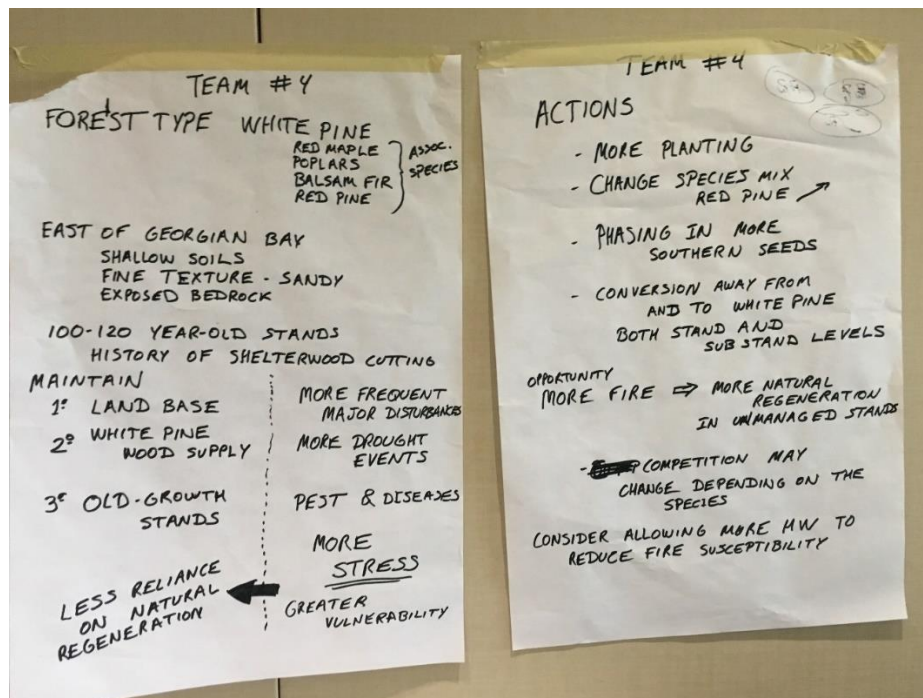 TEAM #4
FOREST TYPE WHITE PINE
RED MAPLE
POPLARS
BALSAM FIR
RED PINE
ASSOC.
SPECIES
EAST OF GEORGIAN BAY
SHALLOW SOILS
FINE TEXTURE - SANDY
EXPOSED BEDROCK
100-120 YEAR-OLD STANDS
HISTORY OF SHELTERWOOD CUTTING
MAINTAIN
1º LAND BASE
2º WHITE PINE
WOOD SUPPLY
3º OLD-GROWTH
STANDS
LESS RELIANCE
ON NATURAL
REGENERATION
MORE FREQUENT
MAJOR DISTURBANCES
MORE DROUGHT
EVENTS
PEST & DISEASES
MORE
STRESS
GREATER
VULNERABILITY
TEAM #4
ACTIONS
- MORE PLANTING
- CHANGE SPECIES MIX
RED PINE
- PHASING IN MORE
SOUTHERN SEEDS
- CONVERSION AWAY FROM
AND TO WHITE PINE
BOTH STAND AND
SUB STAND LEVELS
OPPORTUNITY
MORE FIRE ⇒ MORE NATURAL
REGENERATION
IN UNMANAGED STANDS
- COMPETITION MAY
CHANGE DEPENDING ON THE
SPECIES
CONSIDER ALLOWING MORE HW TO
REDUCE FIRE SUSCEPTIBILITY